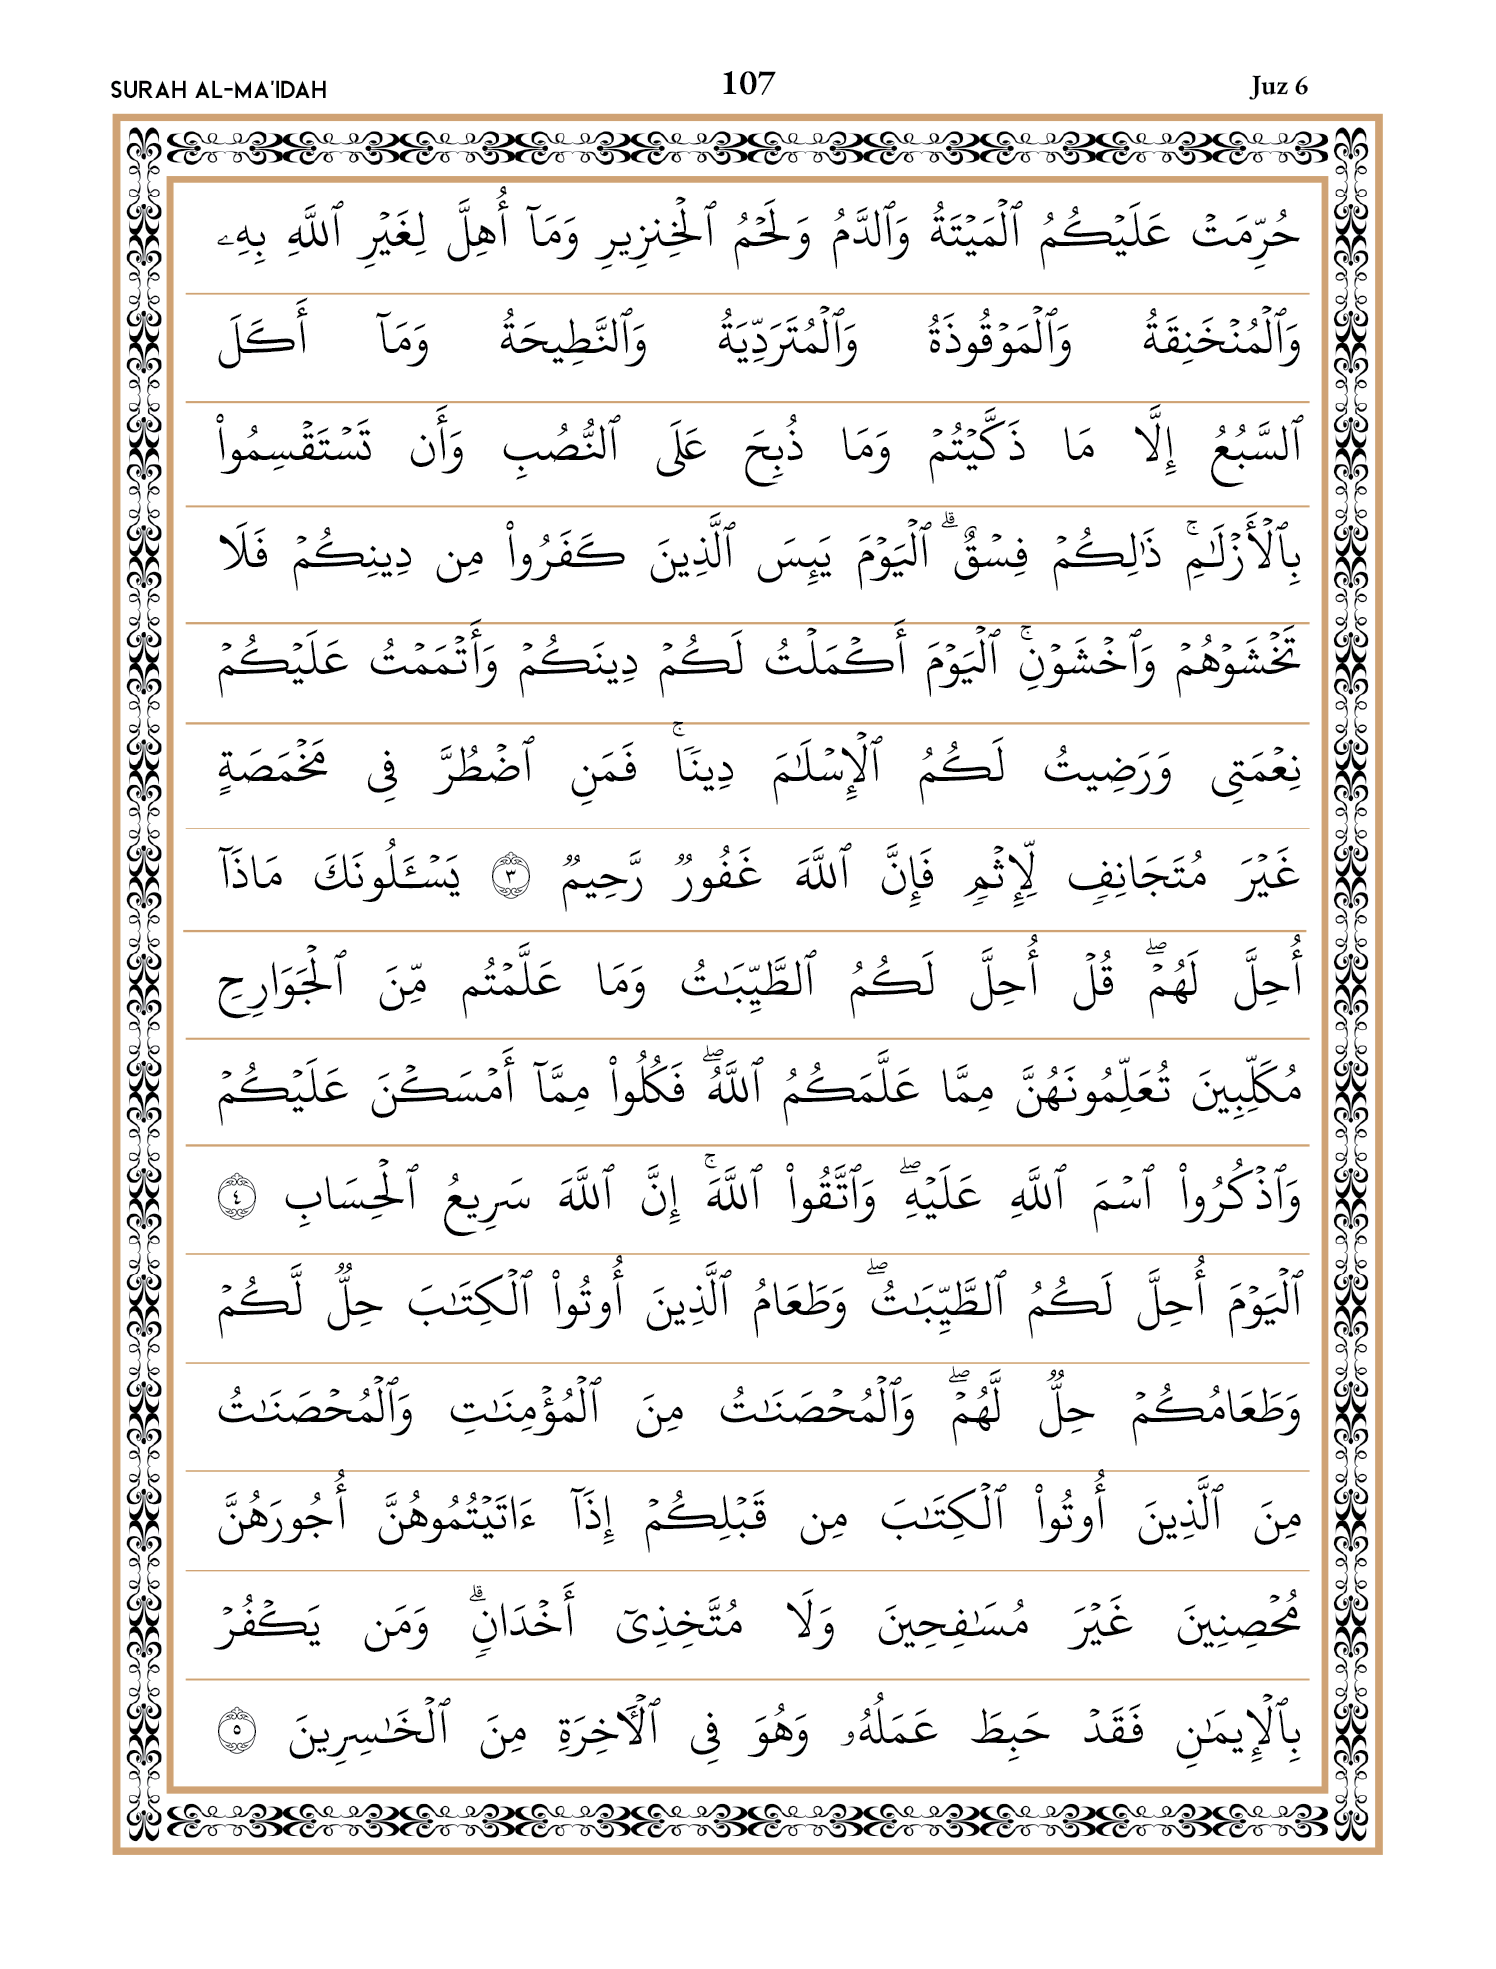 SURAH AL-MA'IDAH 107 Juz 6
حُرِّمَتۡ عَلَيۡكُمُ ٱلۡمَيۡتَةُ وَٱلدَّمُ وَلَحۡمُ ٱلۡخِنزِيرِ وَمَآ أُهِلَّ لِغَيۡرِ ٱللَّهِ بِهِۦ
وَٱلۡمُنۡخَنِقَةُ وَٱلۡمَوۡقُوذَةُ وَٱلۡمُتَرَدِّيَةُ وَٱلنَّطِيحَةُ وَمَآ أَكَلَ
ٱلسَّبُعُ إِلَّا مَا ذَكَّيۡتُمۡ وَمَا ذُبِحَ عَلَى ٱلنُّصُبِ وَأَن تَسۡتَقۡسِمُواْ
بِٱلۡأَزۡلَٰمِۚ ذَٰلِكُمۡ فِسۡقٌۗ ٱلۡيَوۡمَ يَئِسَ ٱلَّذِينَ كَفَرُواْ مِن دِينِكُمۡ فَلَا
تَخۡشَوۡهُمۡ وَٱخۡشَوۡنِۚ ٱلۡيَوۡمَ أَكۡمَلۡتُ لَكُمۡ دِينَكُمۡ وَأَتۡمَمۡتُ عَلَيۡكُمۡ
نِعۡمَتِي وَرَضِيتُ لَكُمُ ٱلۡإِسۡلَٰمَ دِينٗاۚ فَمَنِ ٱضۡطُرَّ فِي مَخۡمَصَةٍ
غَيۡرَ مُتَجَانِفٖ لِّإِثۡمٖ فَإِنَّ ٱللَّهَ غَفُورٞ رَّحِيمٞ ٣ يَسۡـَٔلُونَكَ مَاذَآ
أُحِلَّ لَهُمۡۖ قُلۡ أُحِلَّ لَكُمُ ٱلطَّيِّبَٰتُ وَمَا عَلَّمۡتُم مِّنَ ٱلۡجَوَارِحِ
مُكَلِّبِينَ تُعَلِّمُونَهُنَّ مِمَّا عَلَّمَكُمُ ٱللَّهُۖ فَكُلُواْ مِمَّآ أَمۡسَكۡنَ عَلَيۡكُمۡ
وَٱذۡكُرُواْ ٱسۡمَ ٱللَّهِ عَلَيۡهِۖ وَٱتَّقُواْ ٱللَّهَۚ إِنَّ ٱللَّهَ سَرِيعُ ٱلۡحِسَابِ ٤
ٱلۡيَوۡمَ أُحِلَّ لَكُمُ ٱلطَّيِّبَٰتُۖ وَطَعَامُ ٱلَّذِينَ أُوتُواْ ٱلۡكِتَٰبَ حِلّٞ لَّكُمۡ
وَطَعَامُكُمۡ حِلّٞ لَّهُمۡۖ وَٱلۡمُحۡصَنَٰتُ مِنَ ٱلۡمُؤۡمِنَٰتِ وَٱلۡمُحۡصَنَٰتُ
مِنَ ٱلَّذِينَ أُوتُواْ ٱلۡكِتَٰبَ مِن قَبۡلِكُمۡ إِذَآ ءَاتَيۡتُمُوهُنَّ أُجُورَهُنَّ
مُحۡصِنِينَ غَيۡرَ مُسَٰفِحِينَ وَلَا مُتَّخِذِيٓ أَخۡدَانٖۗ وَمَن يَكۡفُرۡ
بِٱلۡإِيمَٰنِ فَقَدۡ حَبِطَ عَمَلُهُۥ وَهُوَ فِي ٱلۡأٓخِرَةِ مِنَ ٱلۡخَٰسِرِينَ ٥